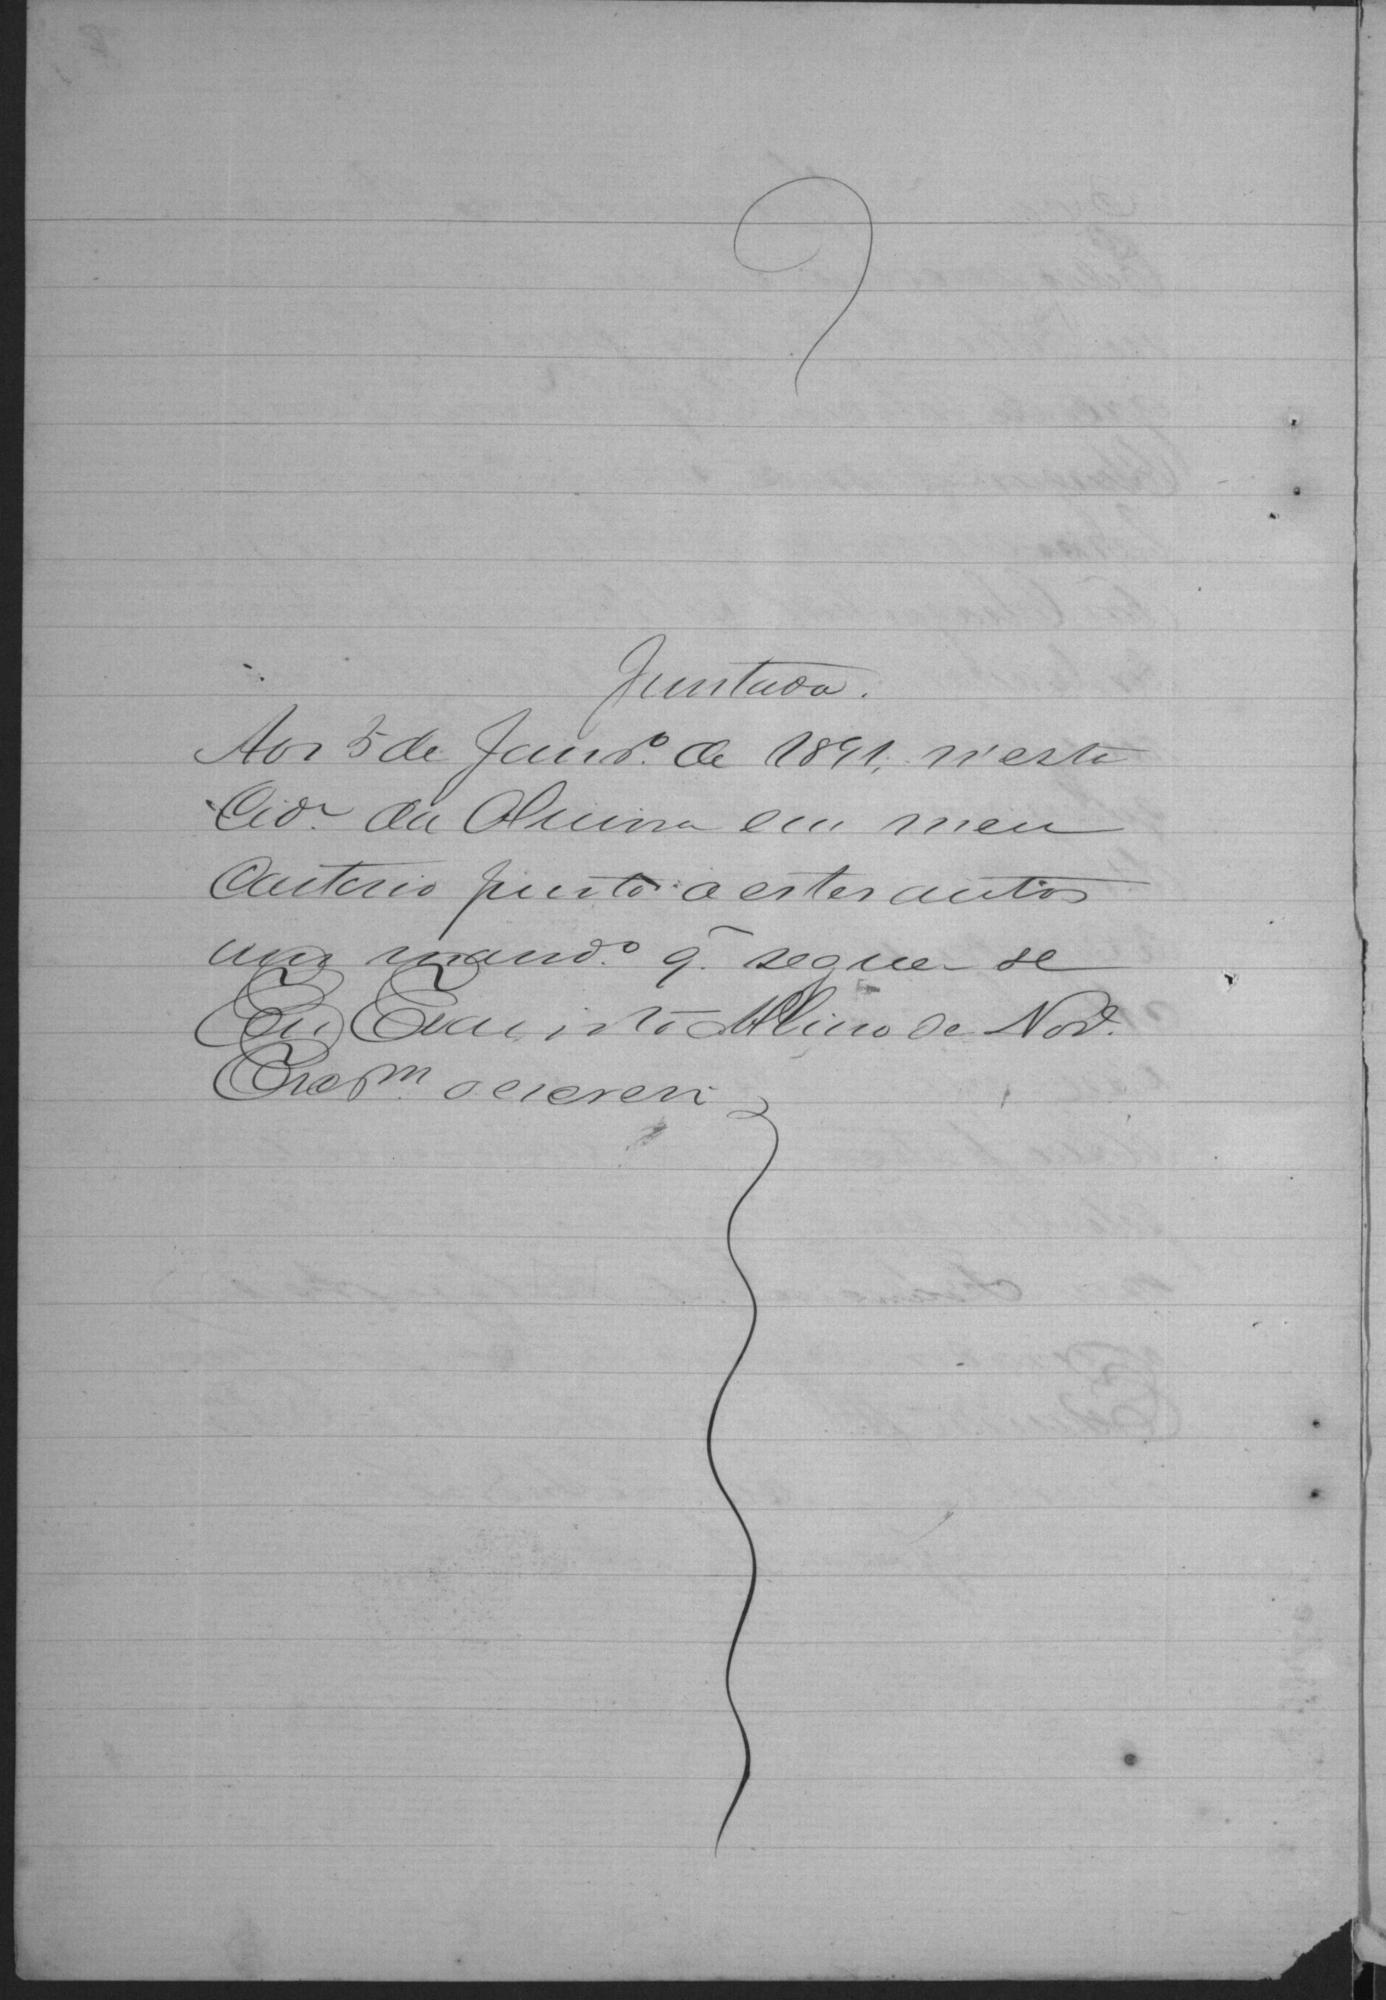 Juntada.
Aos 5 de Janrº. de 1891, n'esta
Cidᵉ. da em meu
Cartorio junto a estes autos
um mandº. q̃. segue-se
Eu Evaristo Albino de
Escrᵐ. o escrevi